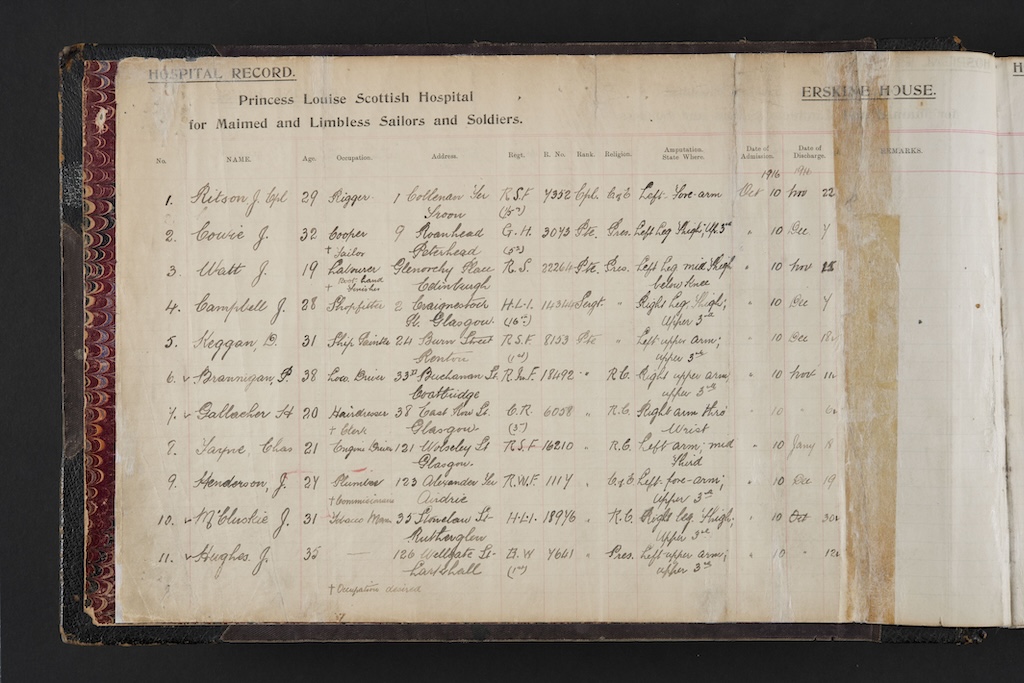 HOSPITAL RECORD.
Princess Louise Scottish Hospital
for Maimed and Limbless Sailors and Soldiers.
ERSKINE HOUSE.
No. NAME. Age. Occupation. Address. Regt. R. No. Rank. Religion. Amputation. State Where. Date of Admission. Date of Discharge. REMARKS.
1916
1. Ritson J. Cpl 29 Rigger 1 Collenan Ter R.S.F 7352 Cpl. C of E Left Fore-arm Oct 10 Nov 22
Troon
2. Cowie J. 32 Cooper 9 Roanhead G.H. 3073 Pte. Pres. Left Leg Thigh; Up. 3rd " 10 Dec 7
† Tailor Peterhead
3. Watt J. 19 Labourer Glenorchy Place R.S. 22264 Pte. Pres. Left Leg mid Thigh " 10 Nov
† Finisher Edinburgh below Knee
4. Campbell J. 28 Shopfitter 2 Craignestock H.L.I. Sergt. " Right Leg Thigh; " 10 Dec 7
St. Glasgow. Upper 3rd
5. Keggan, D. 31 Ship Painter 24 Burn Street R.S.F. 8153 Pte " Left upper arm; " 10 Dec 18
Renton (1st) upper 3rd
6. v Brannigan, P. 38 Loco. Driver 33 Buchanan St. R.In.F. 18492 " R.C. Right upper arm, " 10 Nov 11
Coatbridge upper 3rd
7. v Gallacher H 20 Hairdresser 38 East Row St. C.R. 6058 " R.C. Right arm thro' " 10 "
† Clerk Glasgow. Wrist
8. Fayne, Chas 21 Engine Driver 121 Wolseley St R.S.F 16210 " R.C. Left arm; mid " 10 Jany 8
Glasgow. Third
9. Henderson, J. 24 Plumber 123 Alexander Ter R.W.F. 1117 " C of E Left fore-arm; " 10 Dec 19
Airdrie Upper 3rd
10. v McCluskie J. 31 Tobacco Man 35 Stonelaw St H.L.I. 18976 " R.C. Right leg Thigh; " 10 Oct 30
Rutherglen Upper 3rd
11. v Hughes. J. 35 — 126 Wellgate St B.W 7641 " Pres. Left upper arm; " 10 " 12
Larkhall (1st) upper 3rd
† Occupation desired